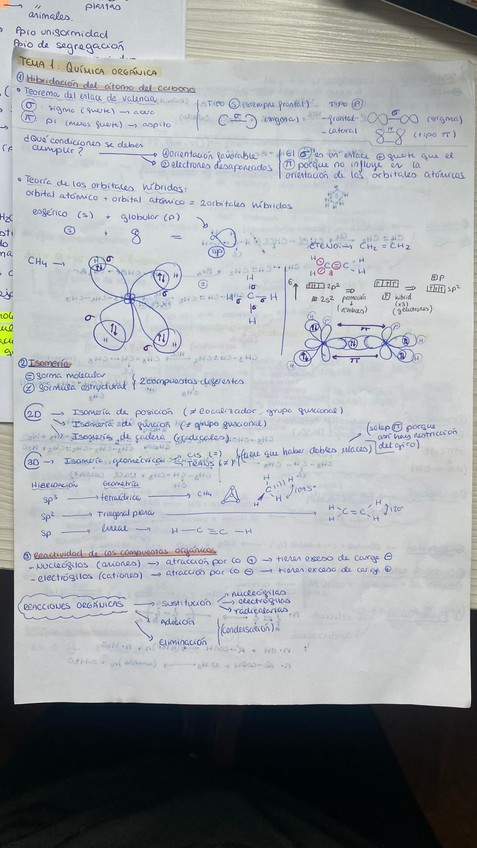 plantas
animales.
Ppio uniformidad
Ppio de segregación
TEMA 1: QUÍMICA ORGÁNICA
① Hibridación del átomo del carbono
• Teorema del enlace de valencia
σ sigma (fuerte) →
π Pi (menos fuerte) →
TIPO Ⓢ (siempre frontal)
(sigma)
TIPO Ⓟ
-frontal (sigma)
-lateral (tipo π)
¿Qué condiciones se deben cumplir?
① orientación favorable
② electrones desapareados
El σ es un enlace + fuerte que el
π porque no influye en la
orientación de los orbitales atómicos
• Teoría de los orbitales híbridos:
orbital atómico + orbital atómico = 2 orbitales híbridos
esférico (s) + globular (p)
s + 8 = sp
CH4 →
H C H
ETENO: → CH2 = CH2
H C = C H
2p²
2s²
promoción
híbrid
sp²
② Isomería
= forma molecular
≠ fórmula estructural } 2 compuestos diferentes
2D → Isomería de posición (≠ localizador, grupo funcional)
→ Isomería de función (≠ grupo funcional)
→ Isomería de cadena (radicales)
3D → Isomería geométrica CIS (=) TRANS (≠) (tiene que haber dobles enlaces)
(solap π porque
así hay restricción
del giro)
Hibridación Geometría
sp³ → tetraédrica → CH4 109'5°
sp² → Trigonal plana → H C = C H 120°
sp → lineal → H — C ≡ C — H
③ Reactividad de los compuestos orgánicos
- Nucleófilos (aniones) → atracción por lo ⊕ → tienen exceso de carga ⊖
- electrófilos (cationes) → atracción por lo ⊖ → tienen exceso de carga ⊕
REACCIONES ORGÁNICAS
→ Sustitución
→ nucleófilas
→ electrófilas
→ radicalarias
→ Adición
→ Eliminación
(condensación)